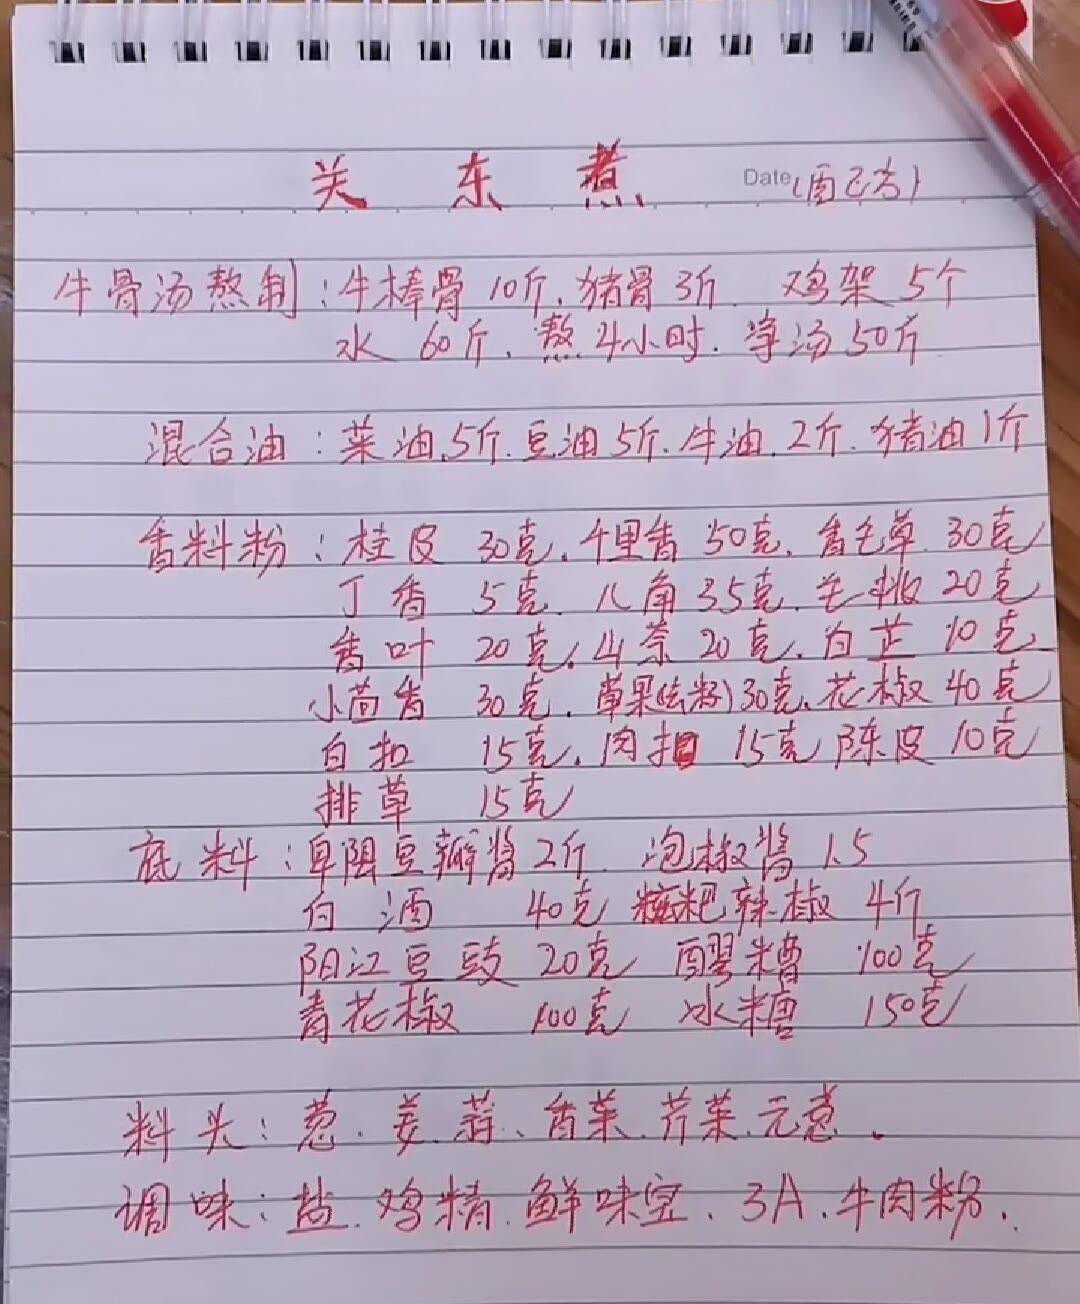 关东煮 Date (配方)
牛骨汤熬制：牛棒骨 10斤、猪骨 3斤 鸡架 5个
水 60斤、熬4小时. 净汤50斤
混合油：菜油5斤.豆油5斤.牛油.2斤.猪油1斤
香料粉：桂皮 30克、千里香 50克、香毛草 30克
丁香 5克. 八角 35克、毛桃 20克
香叶 20克、山柰 20克、白芷 10克、
小茴香 30克、草果(去籽)30克、花椒 40克
白扣 15克、肉扣 15克 陈皮 10克
排草 15克
底料：郫县豆瓣酱 2斤 泡椒酱 1.5
白酒 40克 糍粑辣椒 4斤
阳江豆豉 20克 醪糟 100克
青花椒 100克 冰糖 150克
料头：葱、姜、蒜、香菜、芹菜、元葱、
调味：盐、鸡精、鲜味宝、3A、牛肉粉.